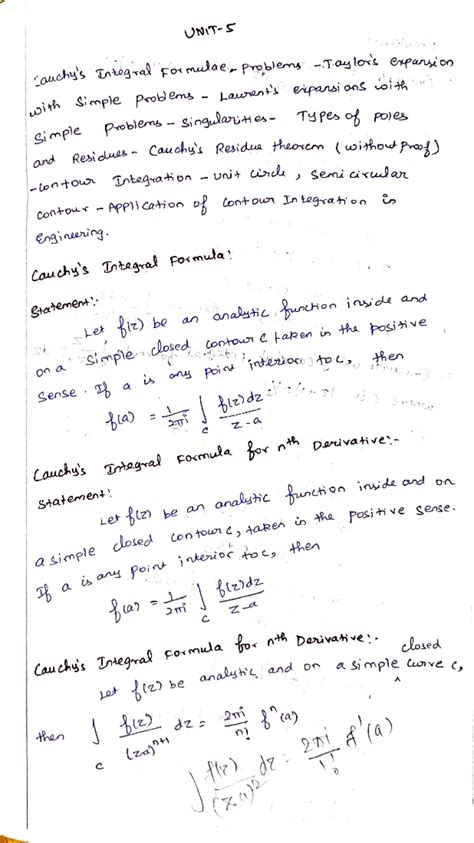 UNIT-5
Cauchy's Integral Formulae - Problems - Taylor's expansion
with Simple Problems - Laurent's expansions with
Simple Problems - Singularities - Types of poles
and Residues - Cauchy's Residue theorem (without proof)
- contour Integration - unit circle, semi circular
contour - Application of contour Integration in
Engineering.
Cauchy's Integral Formula:
Statement:-
Let f(z) be an analytic function inside and
on a simple closed contour c taken in the positive
sense. If a is any point interior to c, then
f(a) = 1/2πi ∫c f(z)dz/z-a
Cauchy's Integral Formula for nth Derivative:-
Statement:
Let f(z) be an analytic function inside and on
a simple closed contour c, taken in the positive sense.
If a is any point interior to c, then
f(a) = 1/2πi ∫c f(z)dz/z-a
Cauchy's Integral Formula for nth Derivative:-
Let f(z) be analytic and on a simple closed curve c,
then ∫c f(z)/(z-a)^n+1 dz = 2πi/n! f^n(a)
∫ f(z)/(z-a)^2 dz = 2πi/1! f'(a)